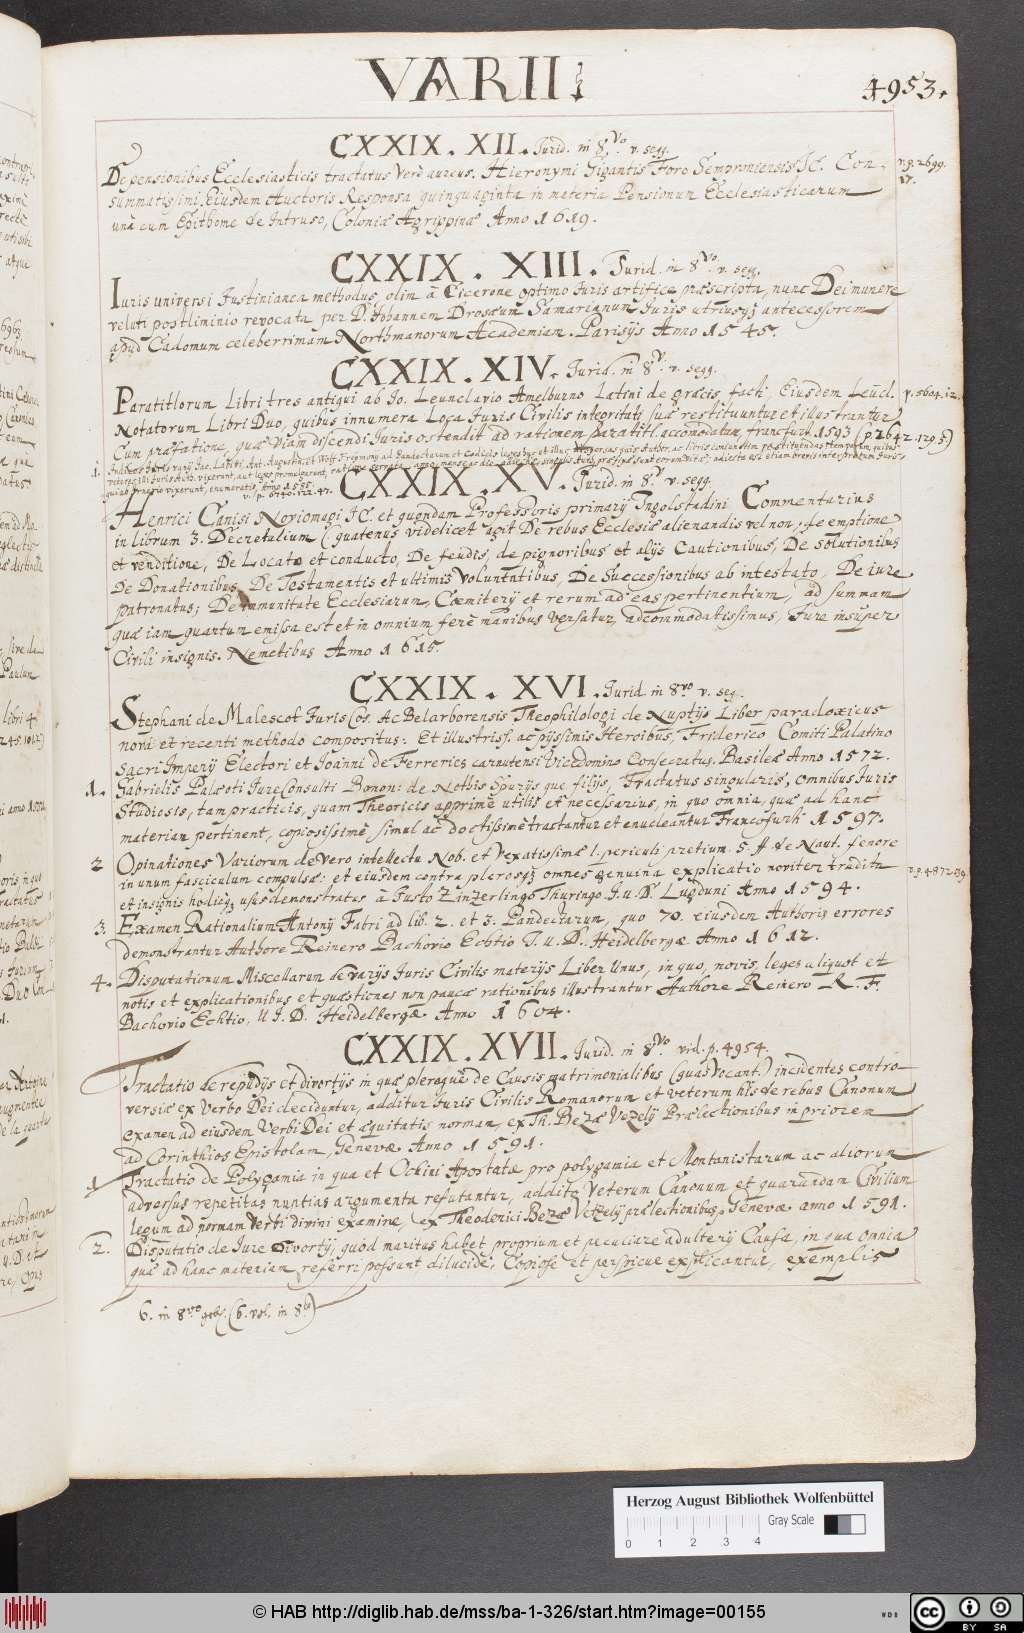 VARII.
4953.
CXXIX. XII. Jurid. in 8.vo v. segg.
De pensionibus Ecclesiasticis tractatus Verè aureus. Hieronymi Gigantis Foro Semproniensis JC. Con-
v. p. 2699.
17.
summatissimi, Eiusdem Auctoris Responsa quinquaginta in materia Pensionum Ecclesiasticarum
unà cum Epithome de Intruso, Coloniæ Agrippinæ Anno 1619.
CXXIX. XIII. Jurid. in 8.vo v. segg.
Iuris universi Justinianea methodus, olim â Cicerone optimo Juris artifice præscripta, nunc Dei munere
veluti postliminio revocata per D. Johannem Drosæum Samarianum Juris utriusq; antecessorem
apud Cadomum celeberrimam Northmanorum Academiam. Parisijs Anno 1545.
CXXIX. XIV. Jurid. in 8.vo v. segg.
Paratitlorum Libri tres antiqui ab Jo. Leunclavio Amelburno Latini de græcis facti, Eiusdem Leucl.
v. p. 5604. 12.
Notatorum Libri Duo, quibus innumera Loca Juris Civilis integritati suæ restituuntur et illustrantur
Cum præfatione, quæ viam discendi Juris ostendit ad rationem paratitl. accomodatam, francfurt. 1593 (p 2642. 129. 5)
1.
veteres illi Juris Auth. vixerunt, aut leges promulgarunt,
quive Imperio vixerunt, enumeratis, Anno 1585.
v. p. 5740. 122. 47.
CXXIX. XV. Jurid. in 8.vo v. segg.
Henrici Canisi Noviomagi JC. et quondam Professoris primarij Ingolstadini Commentarius
in librum 3. Decretalium (quatenus videlicet agit De rebus Ecclesiæ alienandis vel non, de emptione
et venditione, De Locato et conducto, De feudis, de pignoribus et alijs Cautionibus, De solutionibus
De Donationibus, De Testamentis et ultimis voluntatibus, De Successionibus ab intestato, De iure
patronatus; De immunitate Ecclesiarum, Cœmiterij et rerum ad eas pertinentium, ad summam
quæ iam quartum emissa est et in omnium ferè manibus versatur, adcommodatissimus, Jure insuper
Civili insignis. Nemetibus Anno 1615.
CXXIX. XVI. Jurid. in 8.vo v. seg.
Stephani de Malescot JurisCos. Ac Belarborensis Theophilologi de Nuptijs Liber paradoxicus
novi et recenti methodo compositus: Et illustriss. ac pijssimis Heroibus, Friderico Comiti Palatino
Sacri Imperij Electori et Joanni de Ferrerics carnutensi Vicedomino Consecratus. Basileæ Anno 1572.
1. Gabrielis Palæoti JureConsulti Bonon: de Nothis Spurijs que filijs, Tractatus singularis, omnibus Juris
Studiosis, tam practicis, quam Theoricis apprimè utilis et necessarius, in quo omnia, quæ ad hanc
materiam pertinent, copiosissimè simul ac doctissimè tractantur et enucleantur Francofurti 1597.
2 Opinationes Variorum de vero intellectu Nob. et Vexatissimæ l. periculi pretium 5. ff de Naut. fenore
in unum fasciculum compulsæ: et eiusdem contra plerosq; omnes genuina explicatio noviter tradita
v. p. 4872. 89.
et insignis hodieq; usus demonstratus â Justo Zinzerlingo Thuringo J. u. D. Lugduni Anno 1594.
3. Examen Rationalium Antonij Fabri ad lib. 2. et 3. Pandectarum, quo 70. eiusdem Authoris errores
demonstrantur Authore Reinero Bachovio Echtio J. u. D. Heidelbergæ Anno 1612.
4. Disputationum Miscellarum de varijs Juris Civilis materijs Liber Unus, in quo, novis, leges aliquot et
notis et explicationibus et quæstiones non paucæ rationibus illustrantur Authore Reinero R. F.
Bachovio Echtio, U J. D. Heidelbergæ Anno 1604.
CXXIX. XVII. Jurid. in 8.vo vid. p. 4954.
Tractatio de repudijs et divortijs in quæ pleræque de Causis matrimonialibus (quas vocant) incidentes contro-
versiæ ex Verbo Dei deciduntur, additur Juris Civilis Romanorum et veterum his de rebus Canonum
Examen ad eiusdem Verbi Dei et æquitatis normam, ex Th. Bezæ Vezelij Prælectionibus in priorem
ad Corinthios Epistolam, Genevæ Anno 1591.
1 Tractatio de Polygamia in qua et Ochini Apostatæ pro polygamia et Montanistarum ac aliorum
adversus repetitas nuptias argumenta refutantur, addito Veterum Canonum et quarundam Civilium
legum ad normam Verbi divini examine, ex Theodorici Bezæ Vezelij prælectionibus, Genevæ anno 1591.
2. Disputatio de Jure Divortij, quod maritus habet proprium et peculiare adulterij Causa, in qua omnia
quæ ad hanc materiam referri possunt dilucide, Copiose et perspicue explicantur, exemplis
6. in 8.vo (6. vol. in 8.o)
Herzog August Bibliothek Wolfenbüttel
Gray Scale
0 1 2 3 4
© HAB http://diglib.hab.de/mss/ba-1-326/start.htm?image=00155
WDB
cc BY SA